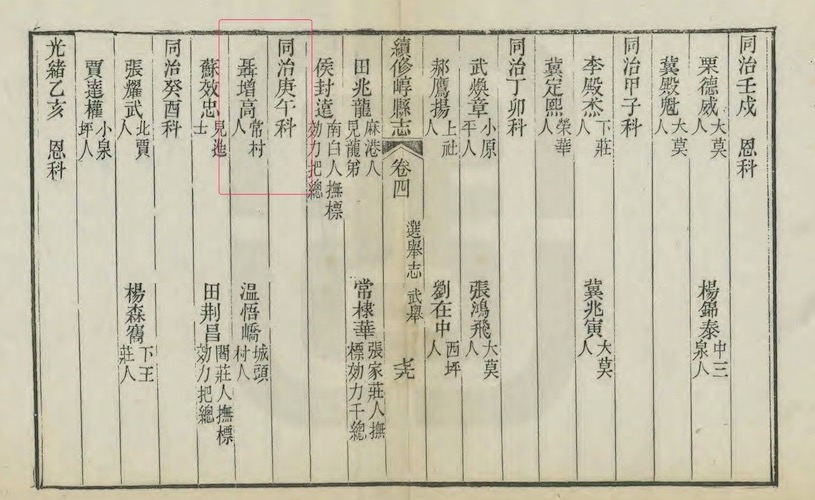 同治壬戌 恩科
栗德威大莫人 楊錦泰中三泉人
冀殿魁大莫人
同治甲子科
李殿杰下莊人 冀兆寅大莫人
冀定熙榮華人
同治丁卯科
武煥章小原平人 張鴻飛大莫人
郝鷹揚上社人 劉在中西坪人
續修崞縣志 卷四 選舉志 武舉
田兆龍麻港人見龍弟 常棣華張家莊人撫標効力千總
侯封達南白人撫標効力把總
同治庚午科
聶增高常村人 溫悟嶠城頭村人
蘇效忠見進士 田荆昌閻莊人撫標効力把總
同治癸酉科
張耀武北賈人 楊森鶱下王莊人
賈達權小泉坪人
光緒乙亥 恩科